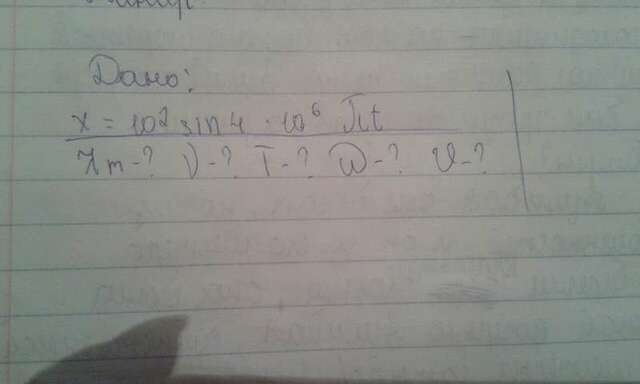 Дано:
x = 10² sin 4 · 10⁶ πt
Xm-? ν-? T-? ω-? υ-?